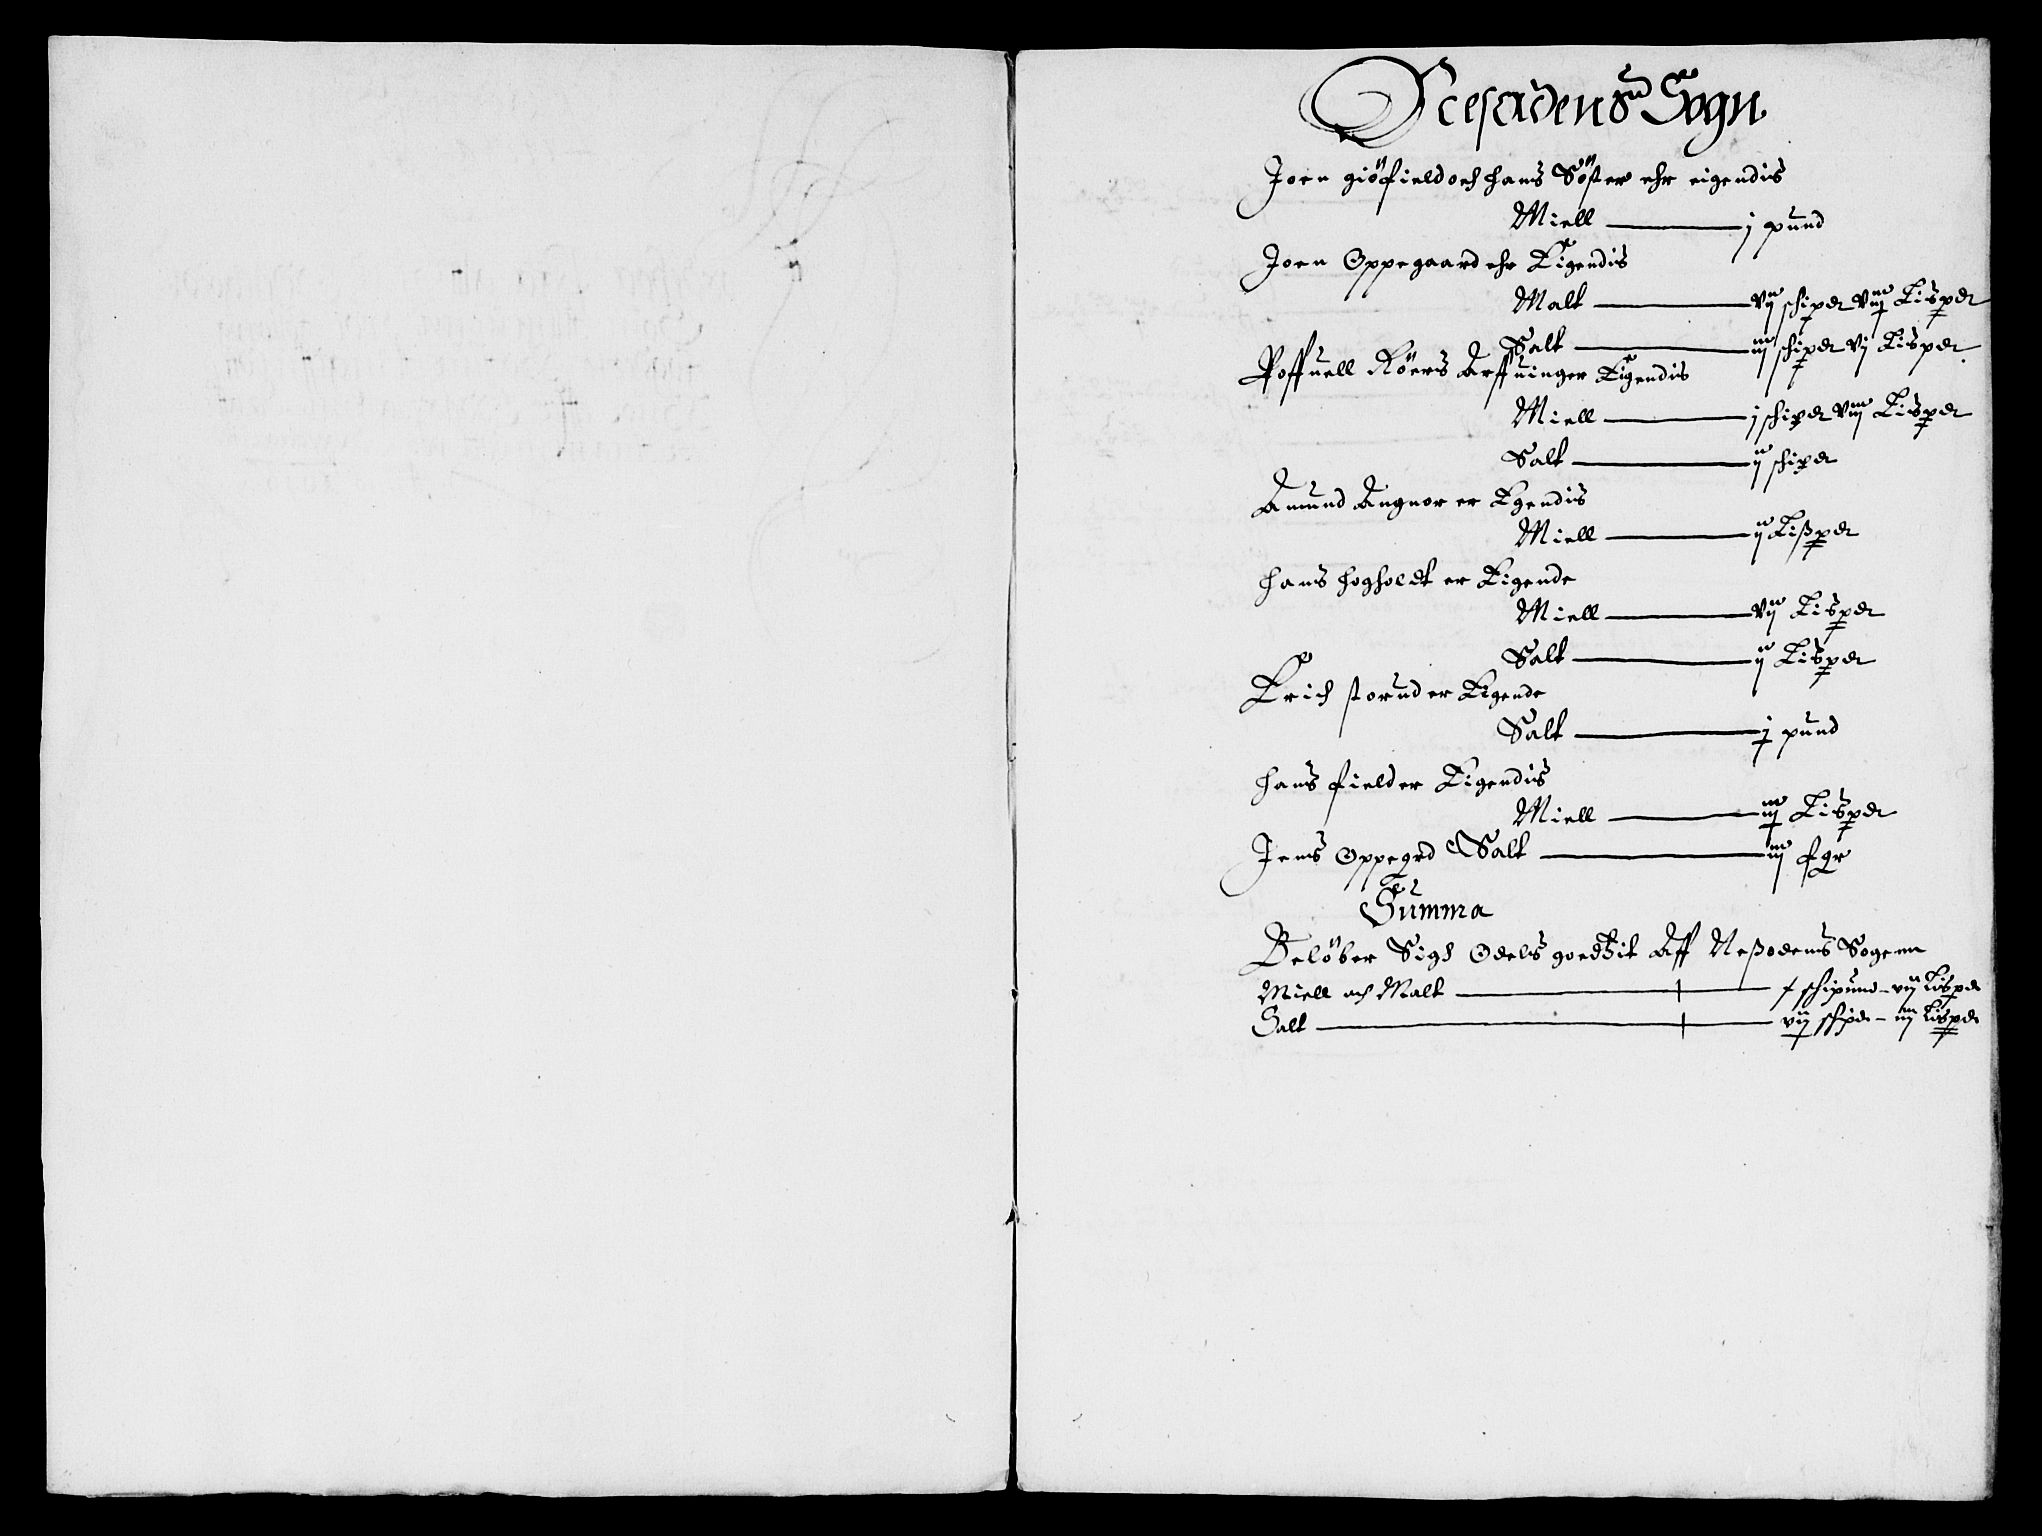 Nesodens Sogn
Joen giöfield och hans Söster ehr eigendis
Miell — j pund
Joen Oppegaard ehr Eigendis
Malt — vij schipd viij Lispd
Salt — iij schipd vj Lispd
Poffuell Röers Arffuinger Eigendis
Miell — j schipd viij Lispd
Salt — ij schipd
Amund Angnor er Egendis
Miell — ij Lißpd
Hans hogholdt er Eigende
Miell — vij Lispd
Salt — ij Lispd
Erich storud er Eigende
Salt — j pund
Hans field er Eigendis
Miell — iij Lispd
Jens Oppegrd Salt — iij
Summa
Belöber Sigh Odels goedzit Aff Neßodens Sogenn
Miell och Malt — schipund – viij Lispd
Salt — vij schipd – iiij Lispd